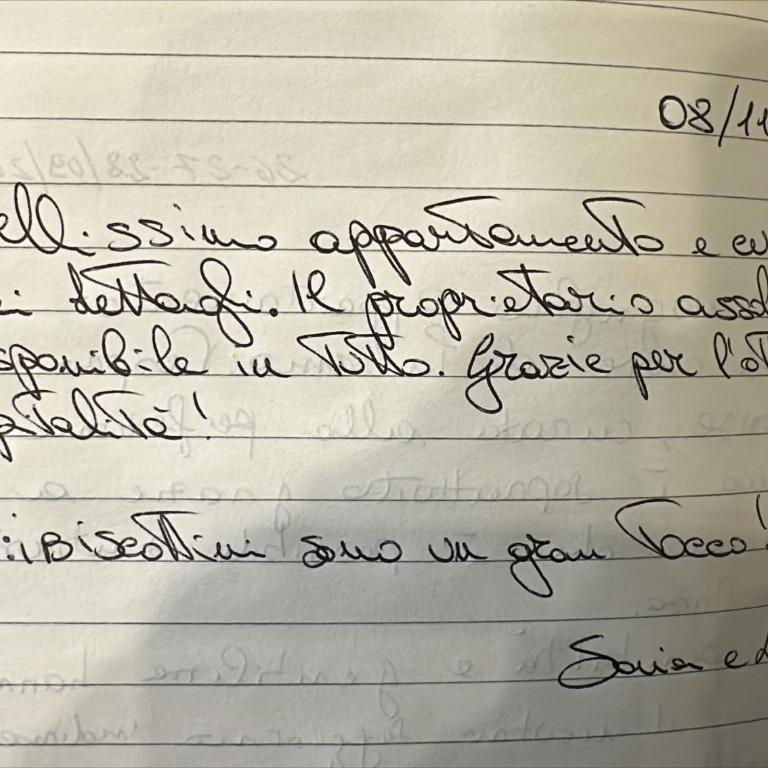 08/11
ellissimo appartamento e cu
i dettagli. Il proprietario assol
sponibile in tutto. Grazie per l'ot
pitalità!
: i Biscottini sono un gran tocco!
e